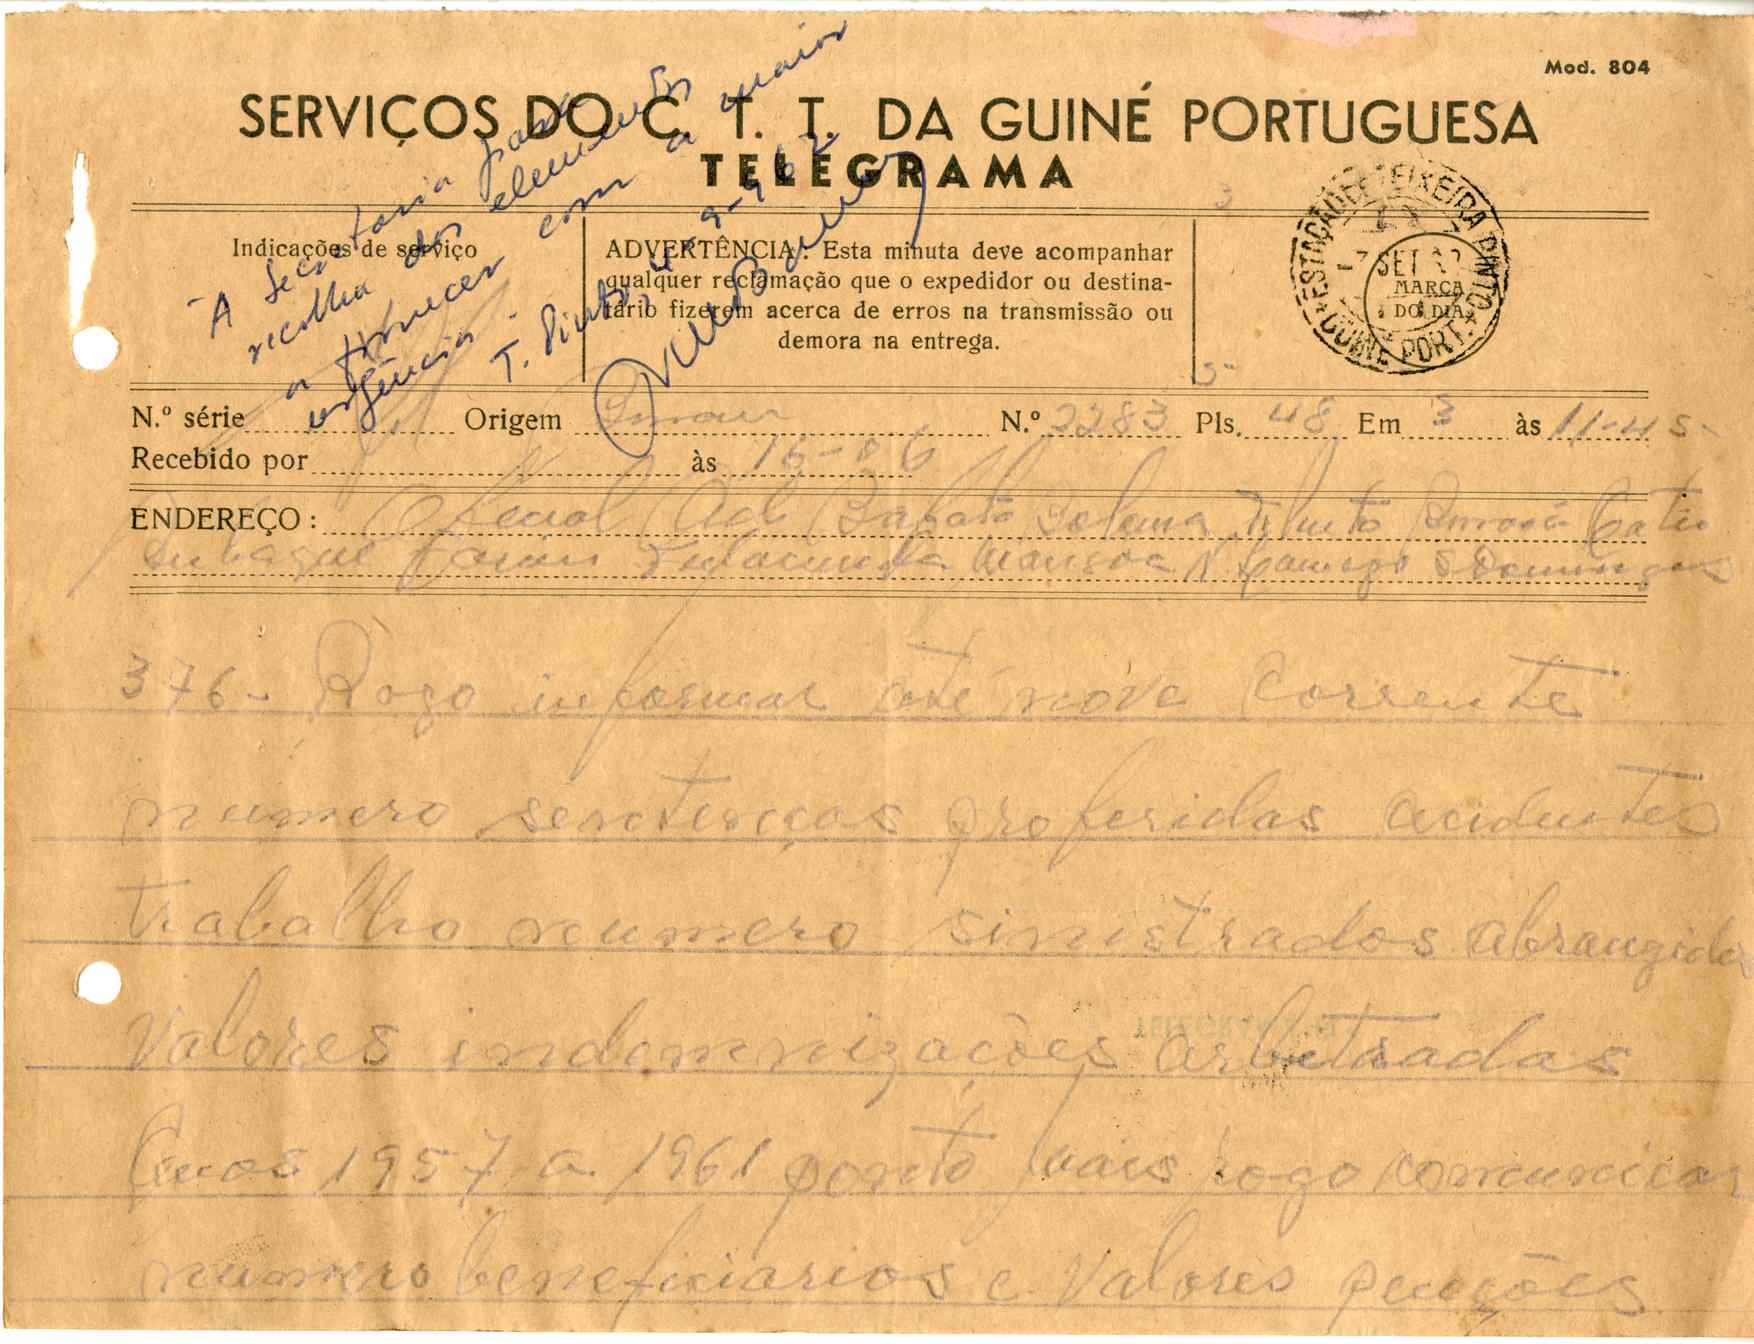 Mod. 804
SERVIÇOS DO C. T. T. DA GUINÉ PORTUGUESA
TELEGRAMA
À Secretaria para
recolha dos elementos
a fornecer com a maior
urgência.
T. Pinto, 4-9-962
Indicações de serviço
ADVERTÊNCIA: Esta minuta deve acompanhar
qualquer reclamação que o expedidor ou destina-
tário fizerem acerca de erros na transmissão ou
demora na entrega.
ESTAÇÃO DE TEIXEIRA PINTO
GUINÉ PORT.
SET
MARCA
DO DIA
N.º série Origem Bissau N.º 2283 Pls. 48 Em 3 às 11-45-
Recebido por às 16-06
ENDEREÇO: Oficial Adl Bafatá Bolama T Pinto Bissau Catió
Bubaque Farim Fulacunda Mansoa N Lamego S Domingos
376- Rogo informar até nove corrente
numero sentenças proferidas acidentes
trabalho numero sinistrados abrangidos
valores indemnizações arbitradas
anos 1957 a 1961 ponto mais rogo comunicar
numero beneficiarios e valores pensões